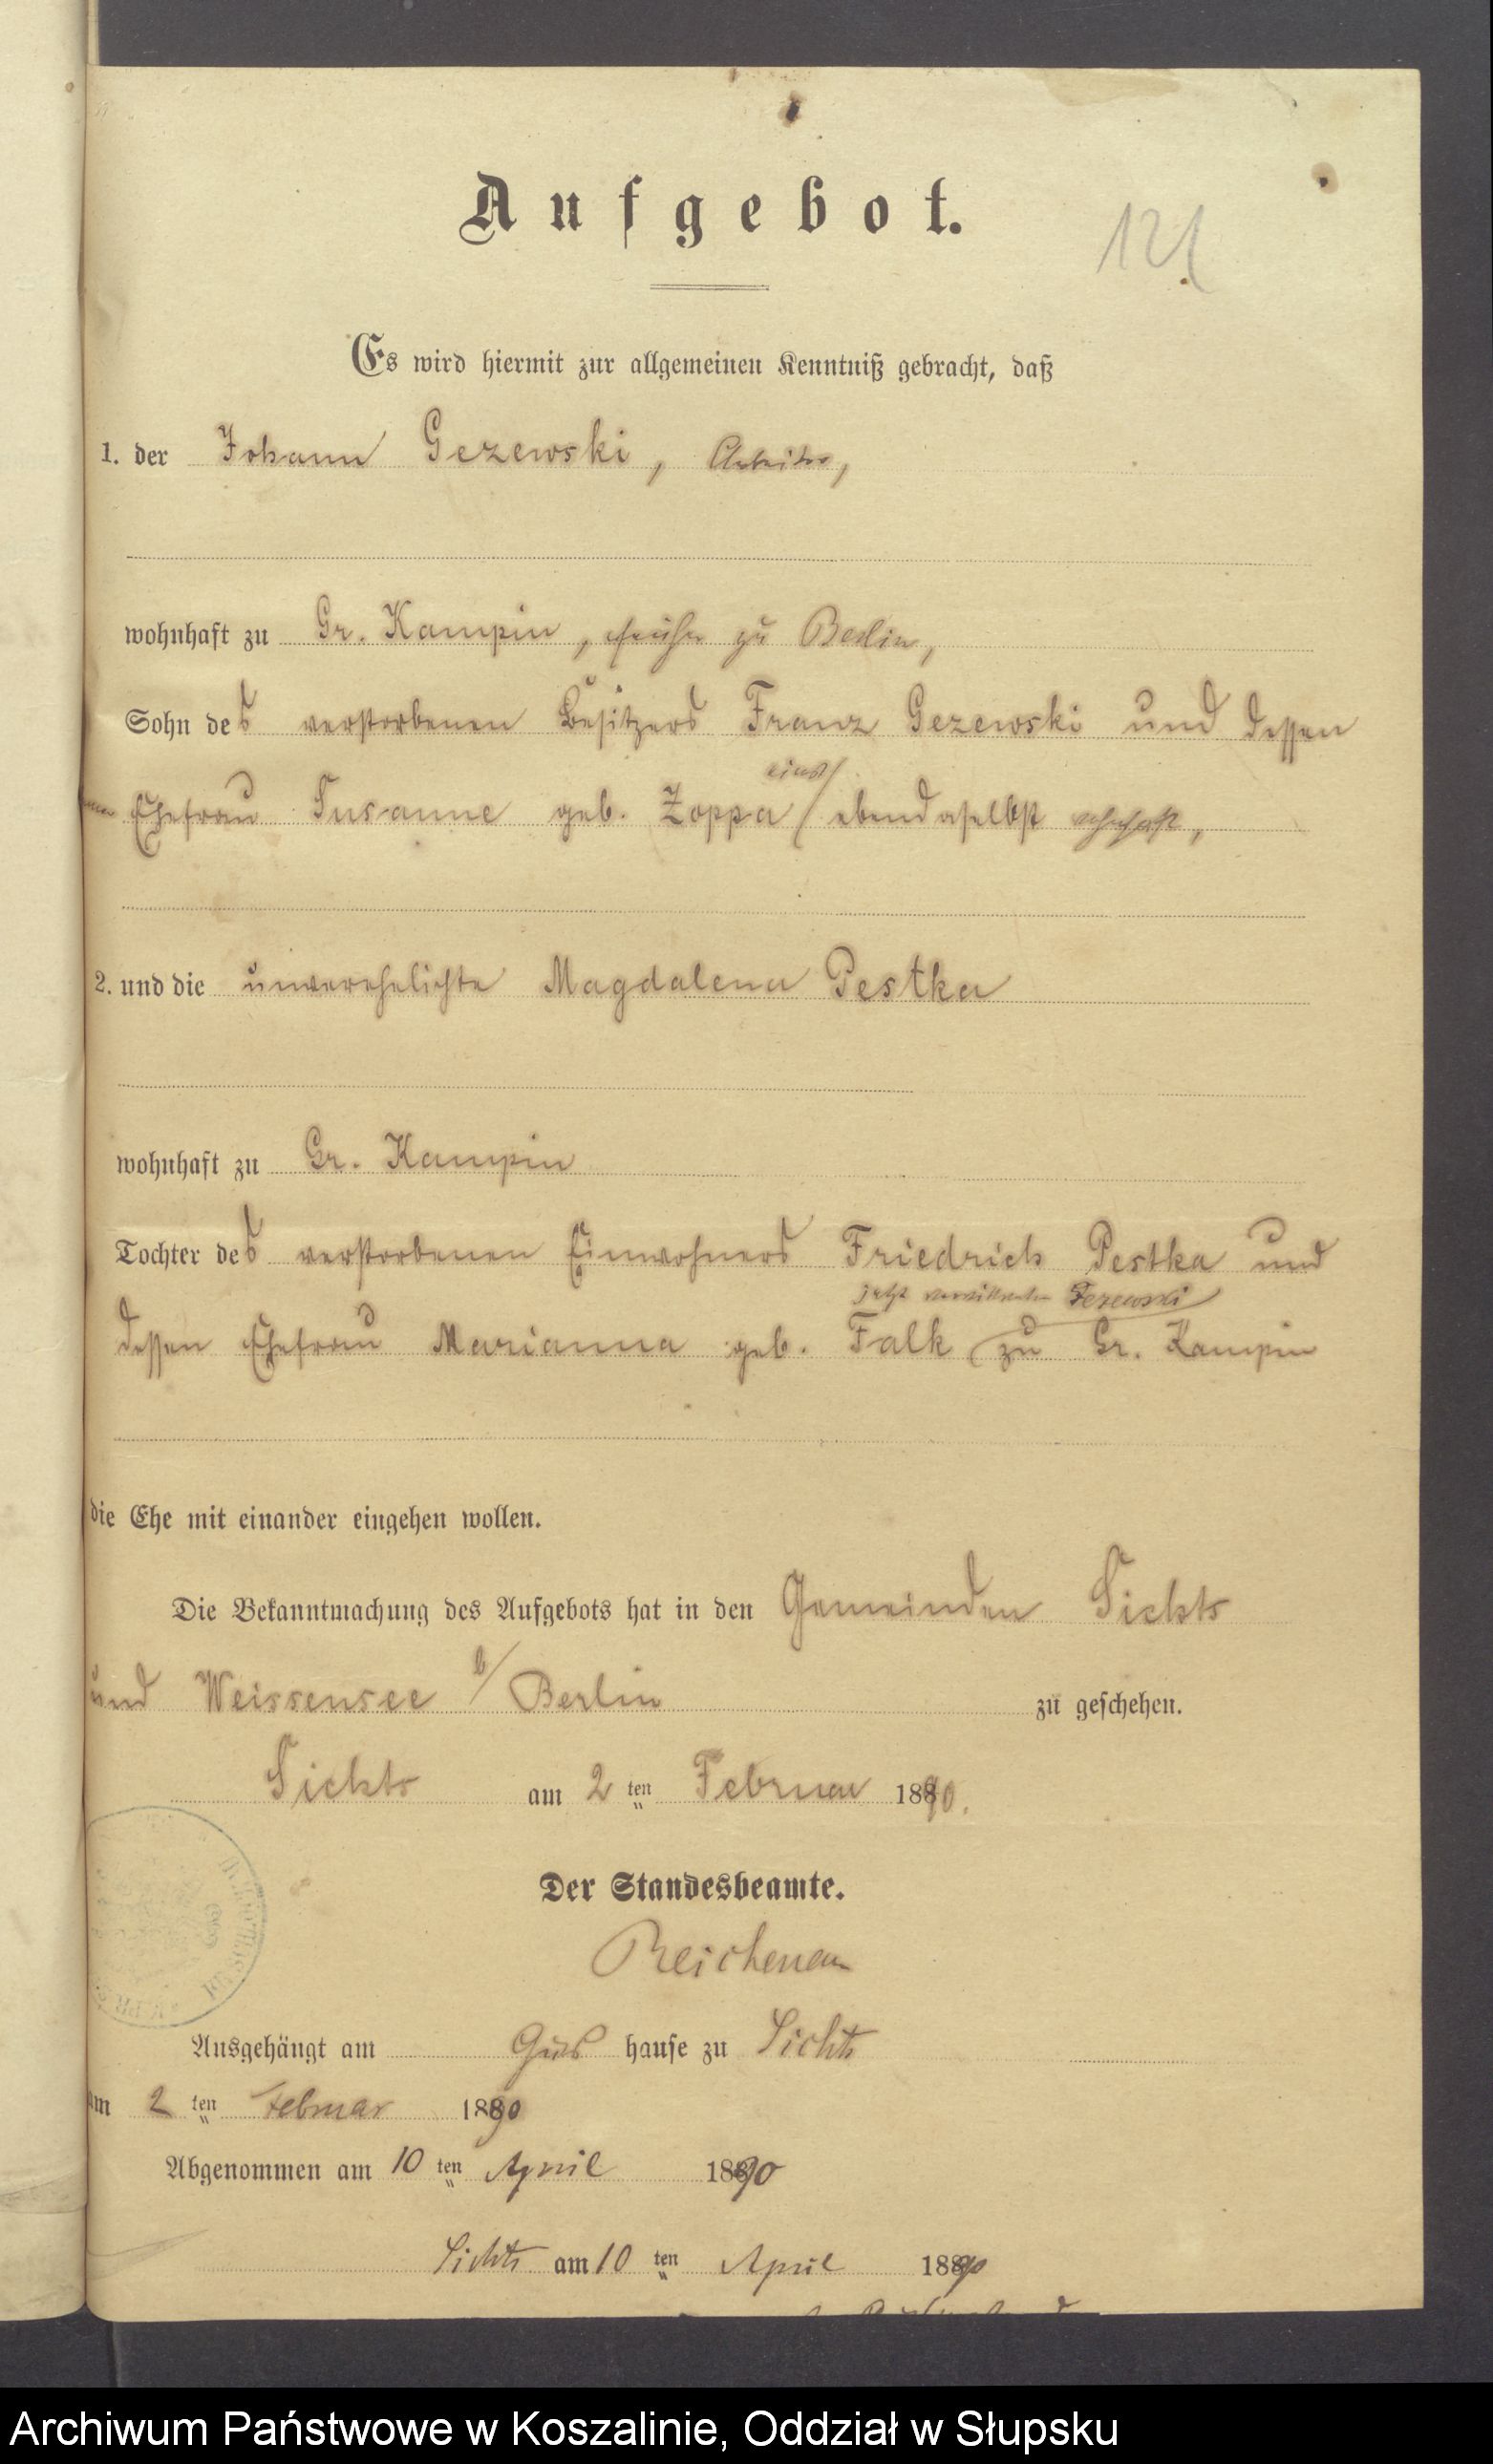 Aufgebot.
121
Es wird hiermit zur allgemeinen Kenntniß gebracht, daß
1. der Johann Gezewski, Arbeiter,
wohnhaft zu Gr. Kampin, früher zu Berlin,
Sohn des verstorbenen Besitzers Franz Gezewski und dessen
einst
Ehefrau Susanne geb. Zoppa ebendaselbst wohnhaft,
2. und die unverehelichte Magdalena Pestka
wohnhaft zu Gr. Kampin
Tochter des verstorbenen Einwohners Friedrich Pestka und
jetzt verwittwete Gezewski
dessen Ehefrau Marianna geb. Falk zu Gr. Kampin
die Ehe mit einander eingehen wollen.
Die Bekanntmachung des Aufgebots hat in den Gemeinden Sichts
und Weissensee b/ Berlin zu geschehen.
Sichts am 2 ten Februar 1890.
Der Standesbeamte.
Reichenau
Ausgehängt am Guts hause zu Sichts
am 2 ten Februar 1890
Abgenommen am 10 ten April 1890
Sichts am 10 ten April 1890
Archiwum Państwowe w Koszalinie, Oddział w Słupsku